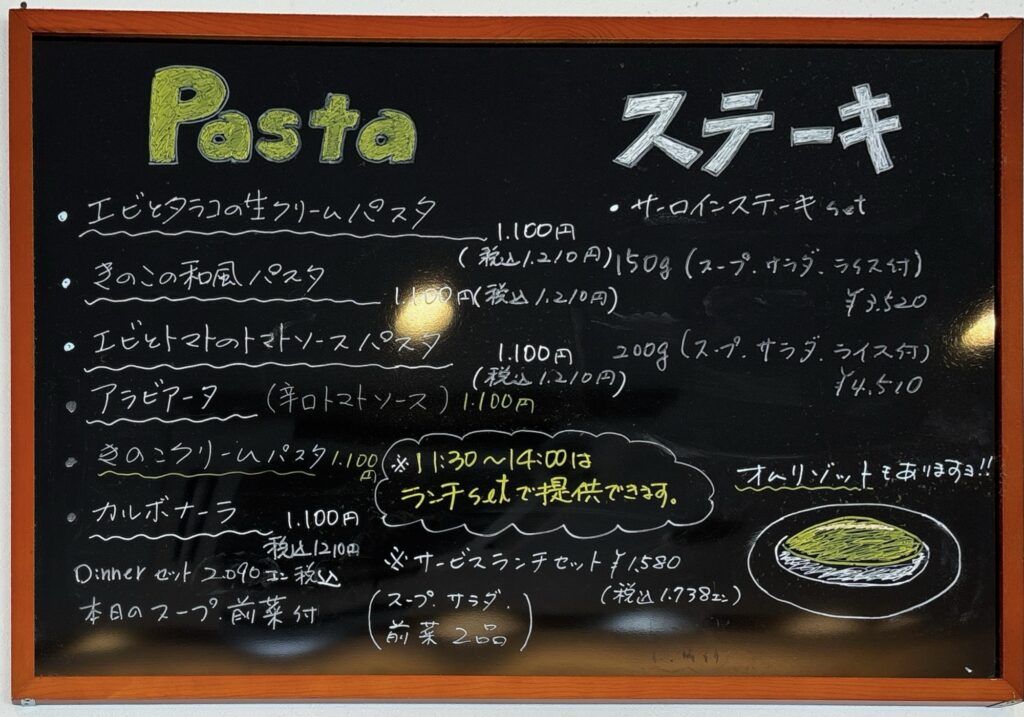 Pasta
・エビとタラコの生クリームパスタ
1.100円
(税込1.210円)
・きのこの和風パスタ
1.100円(税込1.210円)
・エビとトマトのトマトソースパスタ
1.100円
(税込1.210円)
・アラビアータ (辛口トマトソース) 1.100円
・きのこクリームパスタ 1.100円
・カルボナーラ 1.100円
税込1210円
Dinnerセット 2.090エン 税込
本日のスープ.前菜付
ステーキ
・サーロインステーキset
150g (スープ.サラダ.ライス付)
¥3.520
200g (スープ.サラダ.ライス付)
¥4.510
※11:30〜14:00は
ランチsetで提供できます。
※サービスランチセット ¥1.580
(税込1.738エン)
(スープ.サラダ.
前菜2品)
オムリゾットもありますョ!!